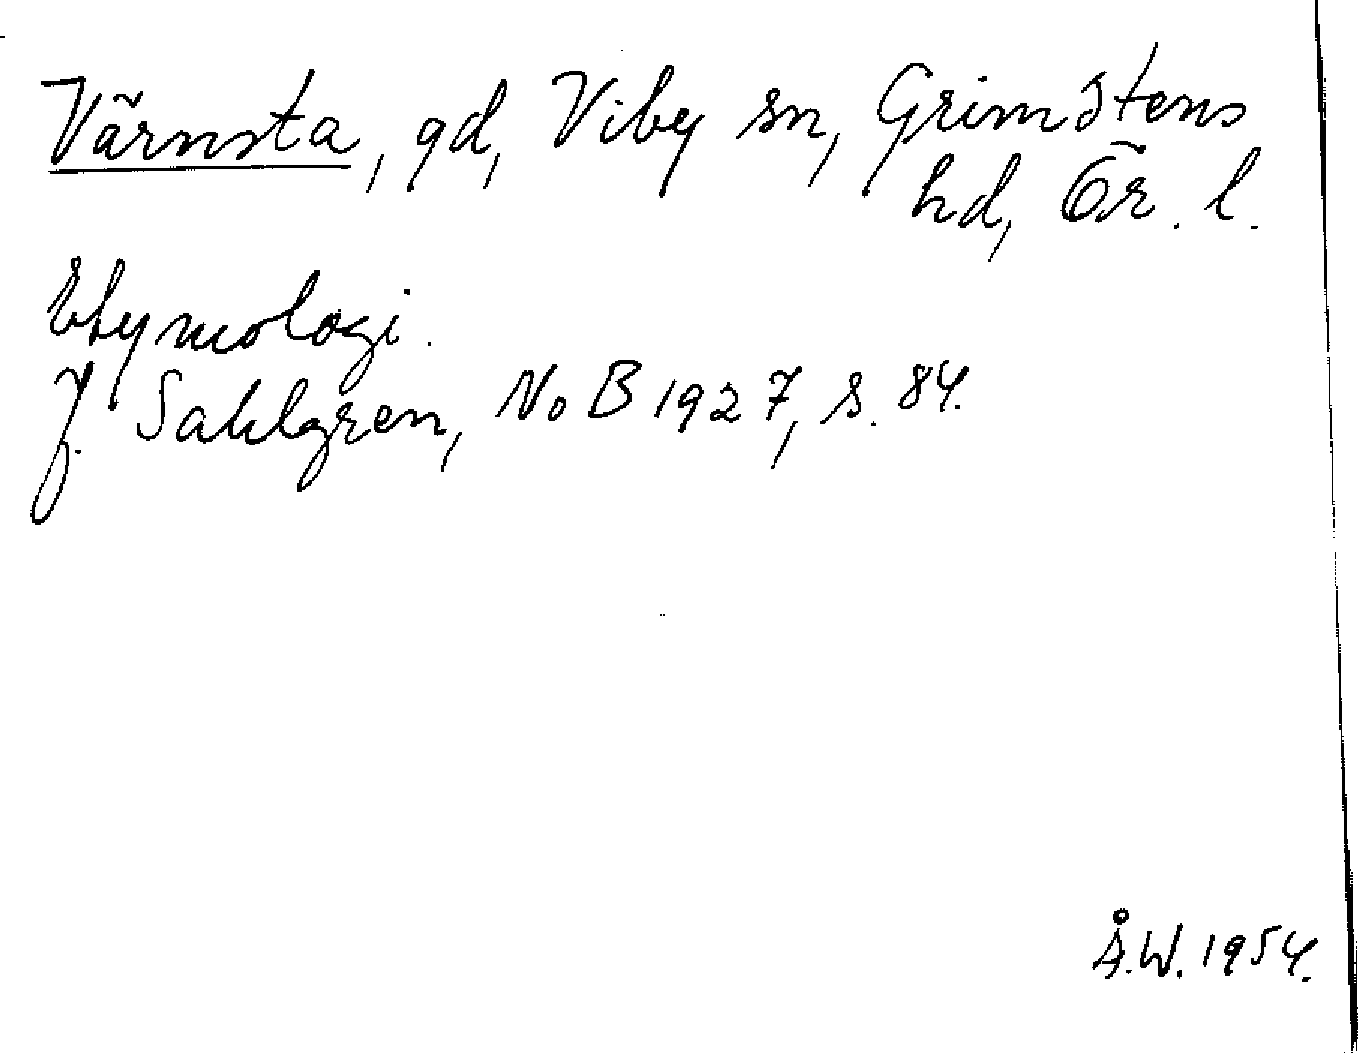 Värnsta, gd, Viby sn, Grimstens
hd, Ör. l.
Etymologi.
J. Sahlgren, NoB 1927, s. 84.
Å.W. 1954.